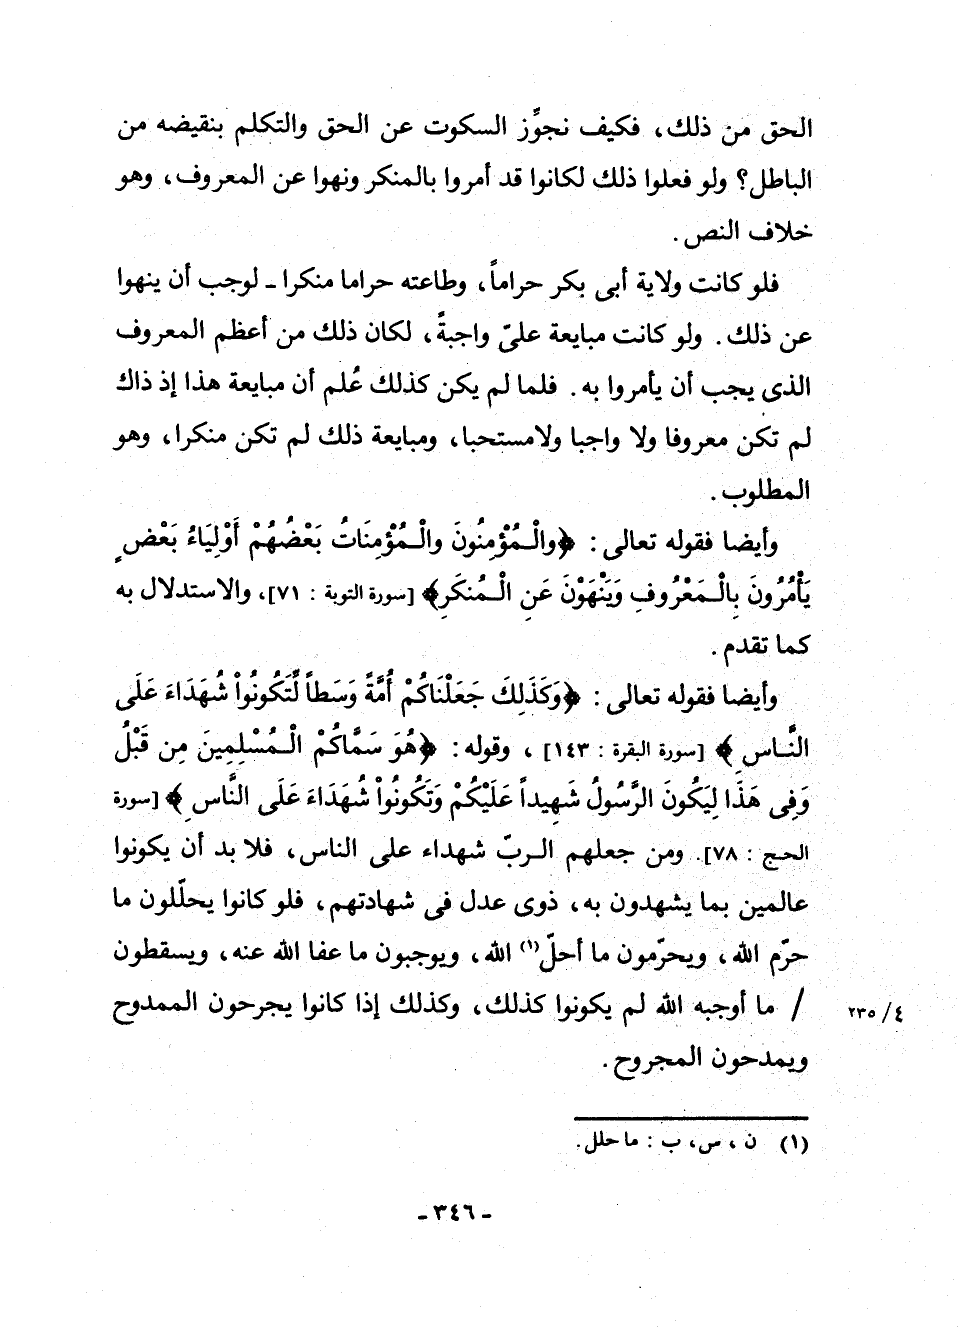 الحق من ذلك، فكيف نجوِّز السكوت عن الحق والتكلم بنقيضه من
الباطل؟ ولو فعلوا ذلك لكانوا قد أمروا بالمنكر ونهوا عن المعروف، وهو
خلاف النص.
فلو كانت ولاية أبى بكر حراماً، وطاعته حراما منكرا ـ لوجب أن ينهوا
عن ذلك. ولو كانت مبايعة علىّ واجبةً، لكان ذلك من أعظم المعروف
الذى يجب أن يأمروا به. فلما لم يكن كذلك عُلم أن مبايعة هذا إذ ذاك
لم تكن معروفا ولا واجبا ولامستحبا، ومبايعة ذلك لم تكن منكرا، وهو
المطلوب.
وأيضا فقوله تعالى: ﴿والْمُؤْمِنُونَ والْمُؤْمِنَاتُ بَعْضُهُمْ أَوْلِيَاءُ بَعْضٍ
يَأْمُرُونَ بِالْمَعْرُوفِ وَيَنْهَوْنَ عَنِ الْمُنكَرِ﴾ [سورة التوبة : ٧١]، والاستدلال به
كما تقدم.
وأيضا فقوله تعالى: ﴿وَكَذَلِكَ جَعَلْنَاكُمْ أُمَّةً وَسَطاً لِّتَكُونُواْ شُهَدَاءَ عَلَى
النَّاسِ﴾ [سورة البقرة : ١٤٣] ، وقوله: ﴿هُوَ سَمَّاكُمْ الْمُسْلِمِينَ مِن قَبْلُ
وَفِى هَذَا لِيَكُونَ الرَّسُولُ شَهِيداً عَلَيْكُمْ وَتَكُونُواْ شُهَدَاءَ عَلَى النَّاسِ﴾ [سورة
الحج : ٧٨]. ومن جعلهم الربّ شهداء على الناس، فلا بد أن يكونوا
عالمين بما يشهدون به، ذوى عدل فى شهادتهم، فلو كانوا يحلّلون ما
حرّم الله، ويحرّمون ما أحلّ(١) الله، ويوجبون ما عفا الله عنه، ويسقطون
/ ما أوجبه الله لم يكونوا كذلك، وكذلك إذا كانوا يجرحون الممدوح
٤/ ٢٣٥
ويمدحون المجروح.
(١) ن ، س، ب : ما حلل.
ـ ٣٤٦ ـ